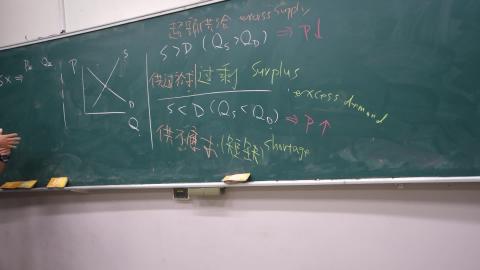 超額供給 excess supply
S>D (Qs>QD) ⇒ P↓
P
S
D
Q
过剩 Surplus
excess demand
S<D (Qs<QD) ⇒ P↑
供不應求 (短缺) shortage